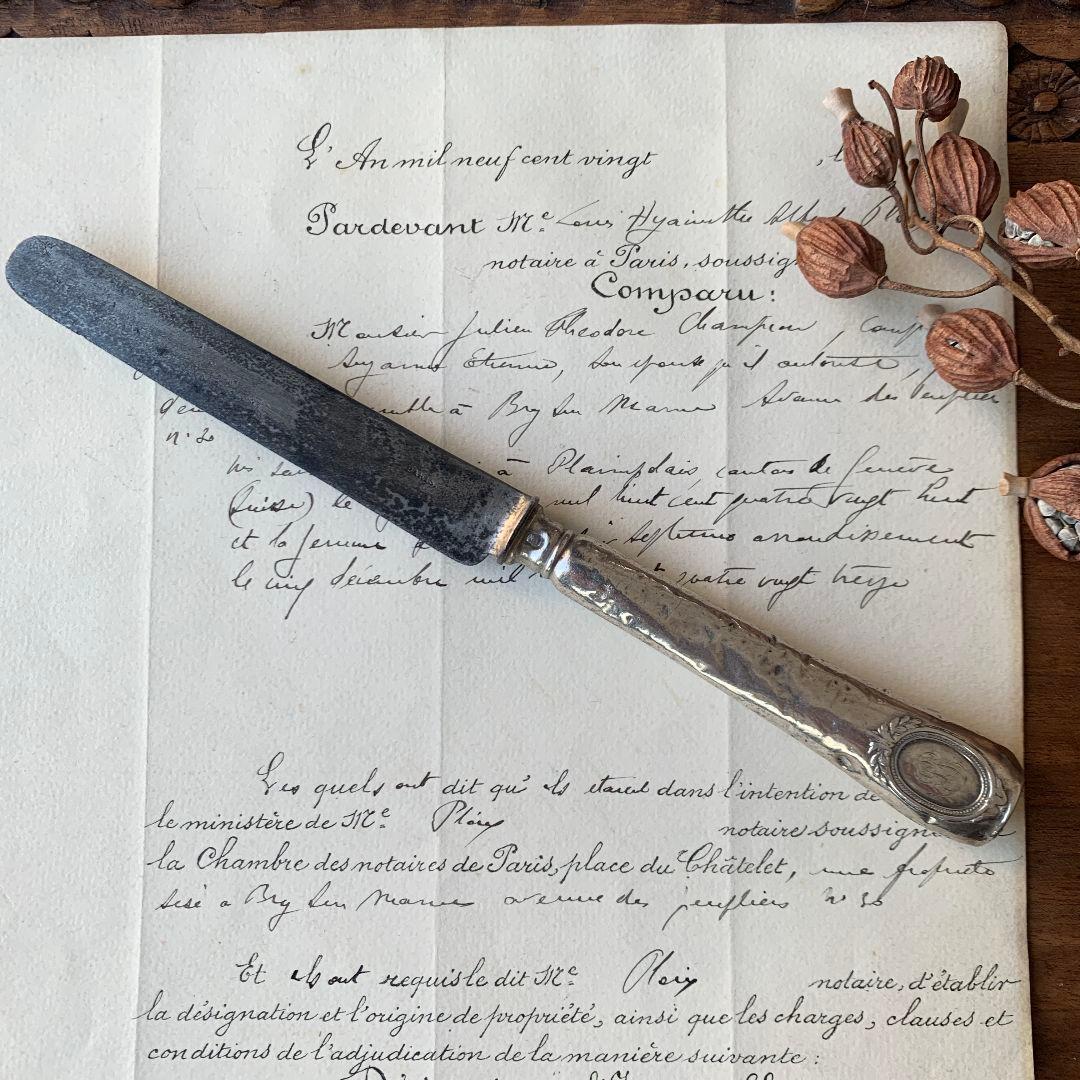 L'An mil neuf cent vingt
Pardevant Me Louis Hyacinthe
notaire à Paris, soussig
Comparu:
Monsieur Julien Theodore Champion,
Suzanne Etienne, son épouse qu'il autorise,
à Bry sur Marne Avenue des Peupliers
n° 30
à Plainpalais canton de Genève
(Suisse) le mil huit cent quatre vingt huit
et la femme septieme arrondissement
le cinq décembre mil quatre vingt treize
Les quels ont dit qu'ils étaient dans l'intention de
le ministère de Me Ploix notaire soussign
la Chambre des notaires de Paris, place du Châtelet, une propriete
sise a Bry sur Marne avenue des peupliers n° 30
Et ils ont requis le dit Me Ploix notaire, d'établir
la désignation et l'origine de propriété, ainsi que les charges, clauses et
conditions de l'adjudication de la manière suivante: